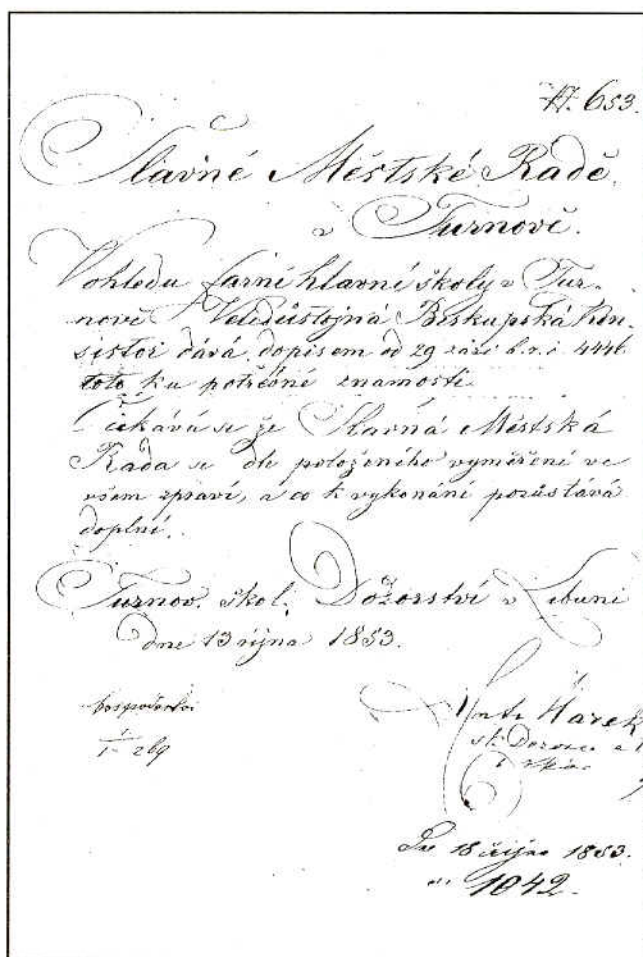 N. 653.
Slavné Městské Radě
v Turnově.
Vohledu farní hlavní školy v Tur-
nově Veledůstojná Biskupská Kon-
sistoř dává dopisem od 29 září b.r. č. 4446
toto ku potřebné známosti.
Očekává se že Slavná Městská
Rada se dle položeného vyměření ve
všem zpraví, a co k vykonání pozůstává
doplní.
Turnov. škol. Dozorství v Libuni
dne 13 října 1853.
Marek
Dne 18 října 1853.
1042.